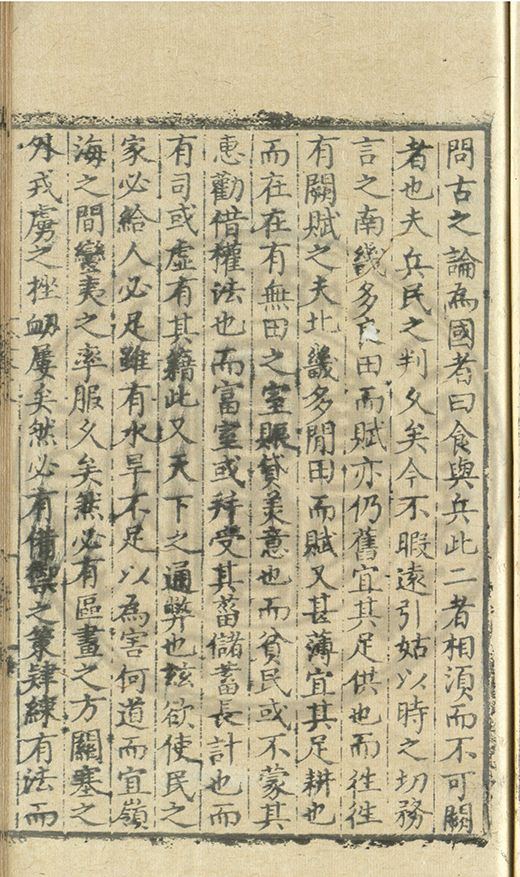 問古之論為國者曰食與兵此二者相須而不可闕
者也夫兵民之判久矣今不暇遠引姑以時之切務
言之南畿多良田而賦亦仍舊宜其足供也而徃徃
有闕賦之夫北畿多閒田而賦又甚薄宜其足耕也
而在在有無田之室賑貸美意也而貧民或不蒙其
惠勸借權法也而富室或並受其蓄儲蓄長計也而
有司或虛有其籍此又天下之通弊也玆欲使民之
家必給人必足雖有水旱不足以為害何道而宜嶺
海之間蠻夷之率服久矣然必有區畫之方關塞之
外戎虜之挫衂屢矣然必有備禦之策肄練有法而